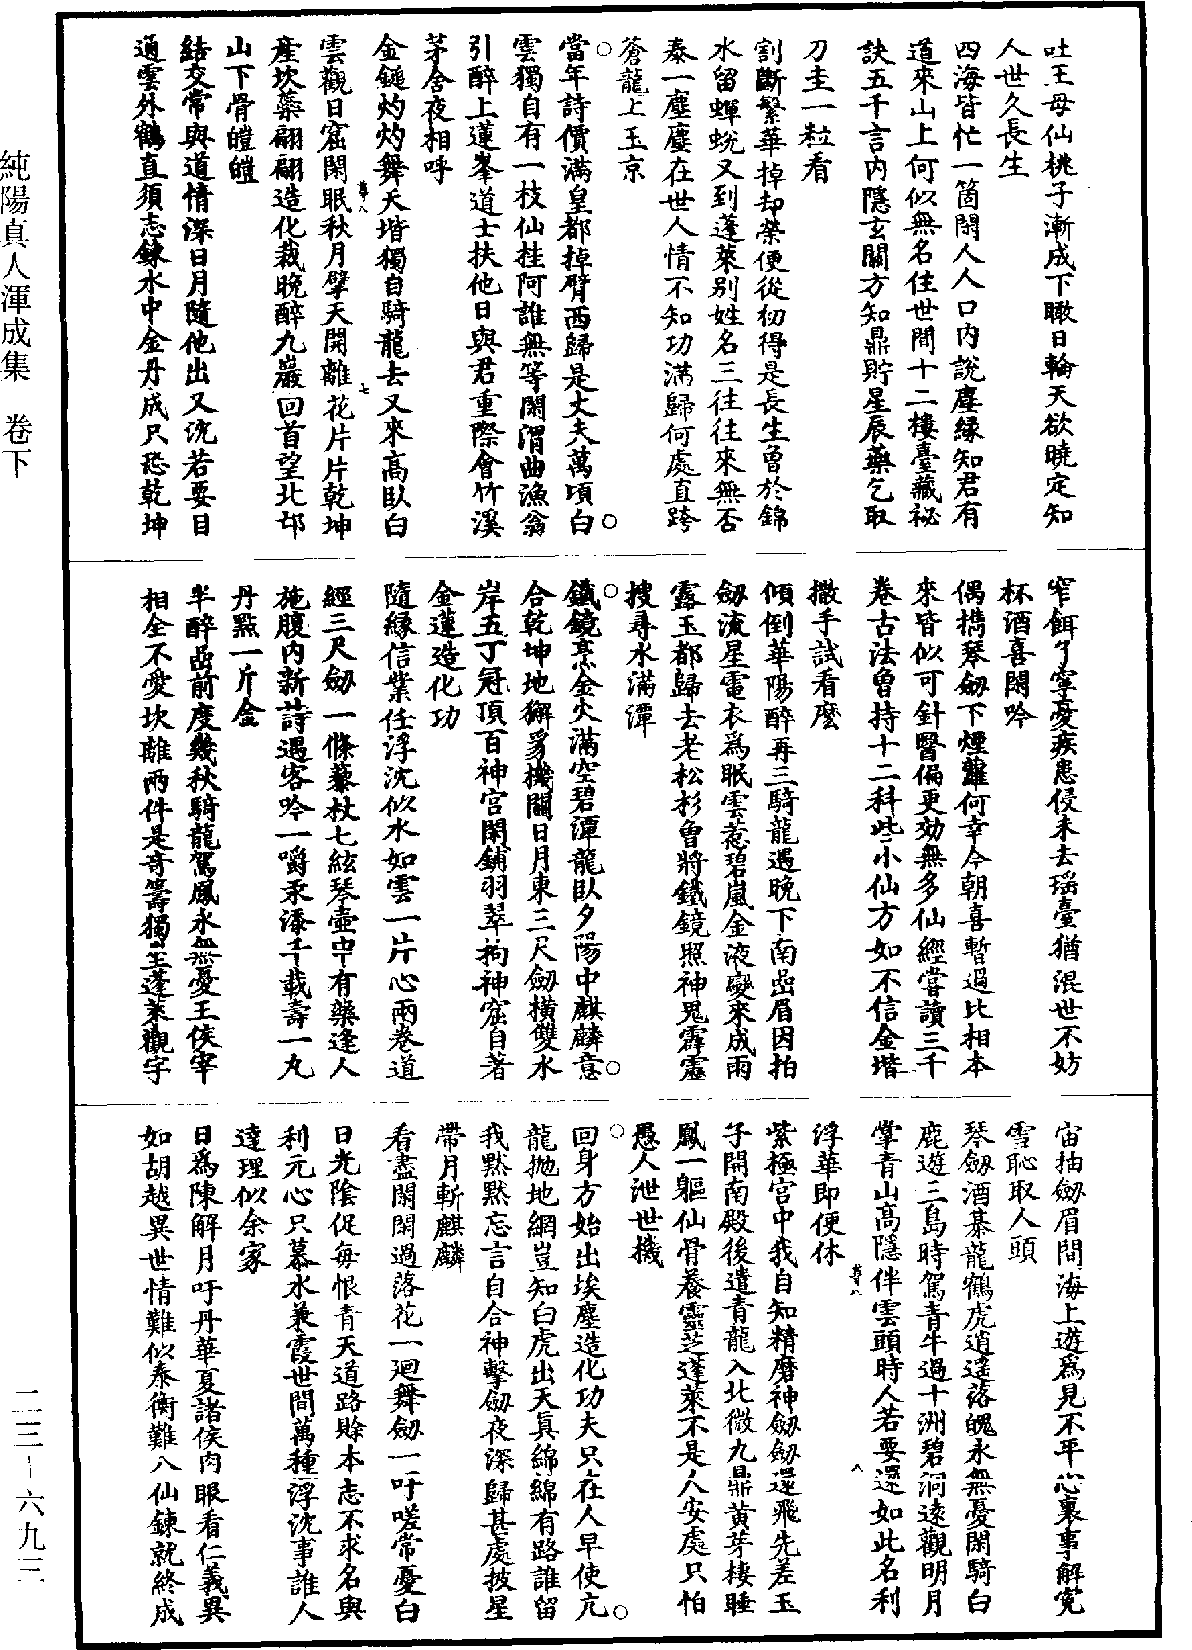 純陽真人渾成集　卷下
二三－六九三
吐王母仙桃子漸成下瞰日輪天欲曉定知
人世久長生
四海皆忙一箇閑人人口內說塵緣知君有
道來山上何似無名住世間十二樓臺藏祕
訣五千言內隱玄關方知鼎貯星辰藥乞取
刀圭一粒看
割斷繁華掉却榮便從初得是長生曾於錦
水留蟬蛻又到蓬萊別姓名三往往來無否
泰一塵塵在世人情不知功滿歸何處直跨
蒼龍上玉京
當年詩價滿皇都掉臂西歸是丈夫萬頃白
雲獨自有一枝仙桂阿誰無等閑渭曲漁翁
引醉上蓮峯道士扶他日與君重際會竹溪
茅舍夜相呼
金鎚灼灼舞天堦獨自騎龍去又來高臥白
雲觀日窟閑眠秋月擘天開離花片片乾坤
產坎藥翩翩造化裁晚醉九巖回首望北邙
山下骨皚皚
結交常與道情深日月隨他出又沉若要目
通雲外鶴直須志鍊水中金丹成只恐乾坤
窄餌了寧憂疾患侵未去瑤臺猶混世不妨
杯酒喜閑吟
偶擕琴劒下煙蘿何幸今朝喜暫過比相本
來皆似可針醫偏更効無多仙經嘗讀三千
卷古法曾持十二科些小仙方如不信金堦
撒手試看麼
傾倒華陽醉再三騎龍遇晚下南嵒眉因拍
劒流星電衣爲眠雲惹碧嵐金液變來成雨
露玉都歸去老松杉曾將鐵鏡照神鬼霹靂
搜尋水滿潭
鐵鏡烹金火滿空碧潭龍臥夕陽中麒麟意
合乾坤地獬豸機關日月東三尺劒橫雙水
岸五丁冠頂百神宮閑鋪羽翠拘神窟自著
金蓮造化功
隨緣信業任浮沈似水如雲一片心兩卷道
經三尺劒一條藜杖七絃琴壺中有藥逢人
施腹內新詩遇客吟一嚼汞漆千載壽一丸
丹點一斤金
半醉嵒前度幾秋騎龍駕鳳永無憂王侯宰
相全不愛坎離兩件是奇籌獨坐蓬萊觀宇
宙抽劒眉間海上遊爲見不平心裏事解冤
雪恥取人頭
琴劒酒棊龍鶴虎逍遙落魄永無憂閑騎白
鹿遊三島時駕青牛過十洲碧洞遠觀明月
掌青山高隱伴雲頭時人若要還如此名利
浮華即便休
紫極宮中我自知精磨神劒劒還飛先差玉
子開南殿後遣青龍入北微九鼎黃芽棲睡
鳳一軀仙骨養靈芝蓬萊不是人安處只怕
愚人泄世機
回身方始出埃塵造化功夫只在人早使亢
龍拋地網豈知白虎出天真綿綿有路誰留
我默默忘言自合神擊劒夜深歸甚處披星
帶月斬麒麟
看盡閑閑過落花一廻舞劒一吁嗟常憂白
日光陰促每恨青天道路賒本志不求名與
利元心只慕水兼霞世間萬種浮沈事誰人
達理似余家
日爲陳解月吁丹華夏諸侯肉眼看仁義異
如胡越異世情難似泰衡難八仙鍊就終成